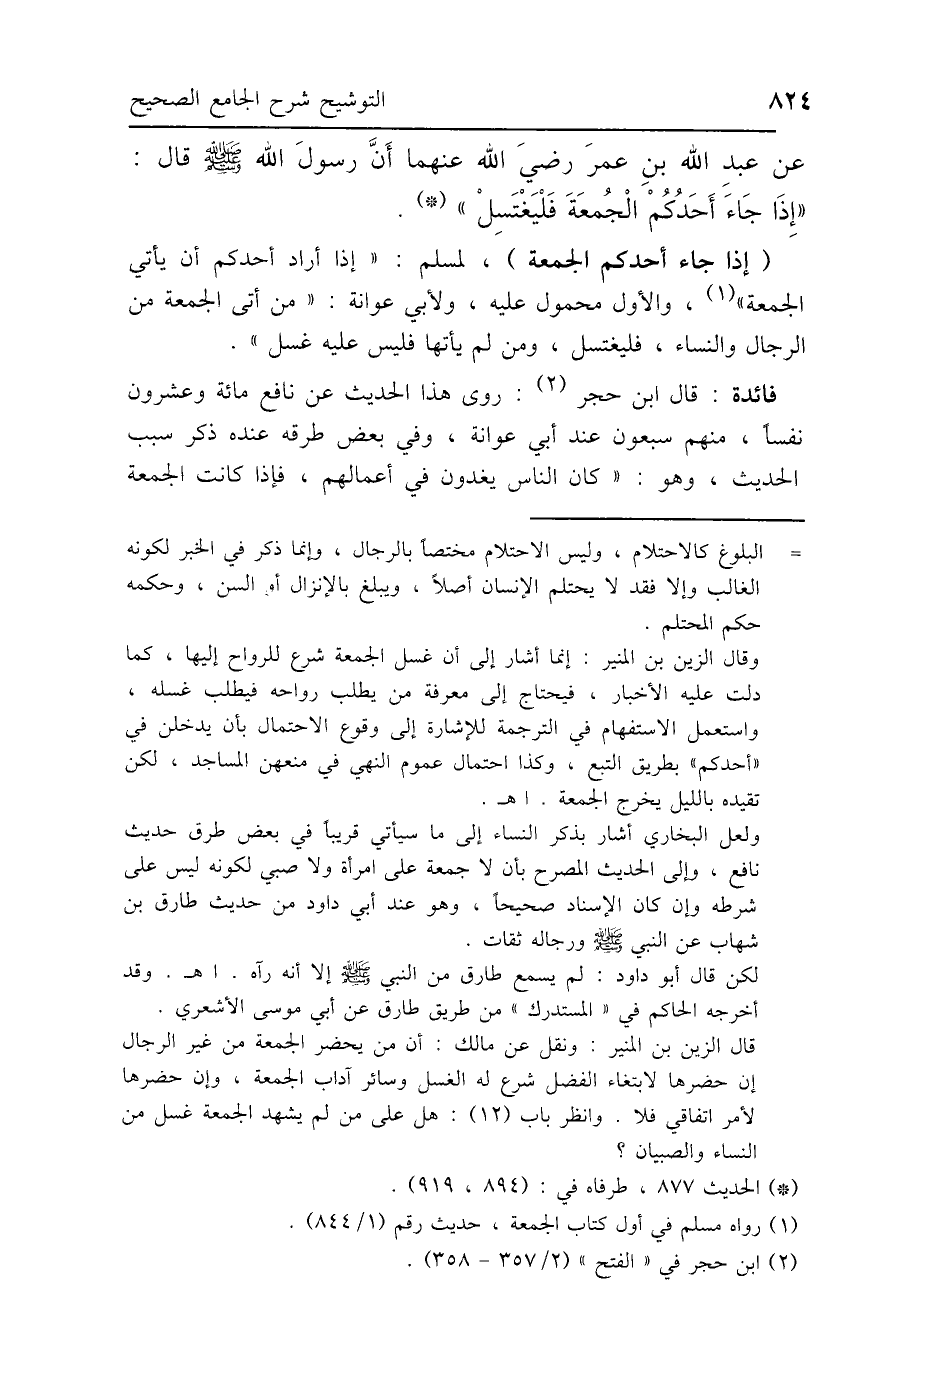 ٨٢٤ التوشيح شرح الجامع الصحيح
عن عبدِ الله بنِ عمرَ رضيَ الله عنهما أَنَّ رسولَ الله ﷺ قال :
«إِذَا جَاءَ أَحَدُكُمْ الْجُمعَةَ فَلْيَغْتَسِلْ » (*) .
( إذا جاء أحدكم الجمعة ) ، لمسلم : « إذا أراد أحدكم أن يأتي
الجمعة»(١) ، والأول محمول عليه ، ولأبي عوانة : « من أتى الجمعة من
الرجال والنساء ، فليغتسل ، ومن لم يأتها فليس عليه غسل » .
فائدة : قال ابن حجر (٢) : روى هذا الحديث عن نافع مائة وعشرون
نفساً ، منهم سبعون عند أبي عوانة ، وفي بعض طرقه عنده ذكر سبب
الحديث ، وهو : « كان الناس يغدون في أعمالهم ، فإذا كانت الجمعة
= البلوغ كالاحتلام ، وليس الاحتلام مختصاً بالرجال ، وإنما ذكر في الخبر لكونه
الغالب وإلا فقد لا يحتلم الإنسان أصلاً ، ويبلغ بالإنزال أو السن ، وحكمه
حكم المحتلم .
وقال الزين بن المنير : إنما أشار إلى أن غسل الجمعة شرع للرواح إليها ، كما
دلت عليه الأخبار ، فيحتاج إلى معرفة من يطلب رواحه فيطلب غسله ،
واستعمل الاستفهام في الترجمة للإشارة إلى وقوع الاحتمال بأن يدخلن في
«أحدكم» بطريق التبع ، وكذا احتمال عموم النهي في منعهن المساجد ، لكن
تقيده بالليل يخرج الجمعة . ا هـ .
ولعل البخاري أشار بذكر النساء إلى ما سيأتي قريباً في بعض طرق حديث
نافع ، وإلى الحديث المصرح بأن لا جمعة على امرأة ولا صبي لكونه ليس على
شرطه وإن كان الإسناد صحيحاً ، وهو عند أبي داود من حديث طارق بن
شهاب عن النبي ﷺ ورجاله ثقات .
لكن قال أبو داود : لم يسمع طارق من النبي ﷺ إلا أنه رآه . ا هـ . وقد
أخرجه الحاكم في « المستدرك » من طريق طارق عن أبي موسى الأشعري .
قال الزين بن المنير : ونقل عن مالك : أن من يحضر الجمعة من غير الرجال
إن حضرها لابتغاء الفضل شرع له الغسل وسائر آداب الجمعة ، وإن حضرها
لأمر اتفاقي فلا . وانظر باب (١٢) : هل على من لم يشهد الجمعة غسل من
النساء والصبيان ؟
(*) الحديث ٨٧٧ ، طرفاه في : (٨٩٤ ، ٩١٩) .
(١) رواه مسلم في أول كتاب الجمعة ، حديث رقم (٨٤٤/١) .
(٢) ابن حجر في « الفتح » (٣٥٧/٢ - ٣٥٨) .